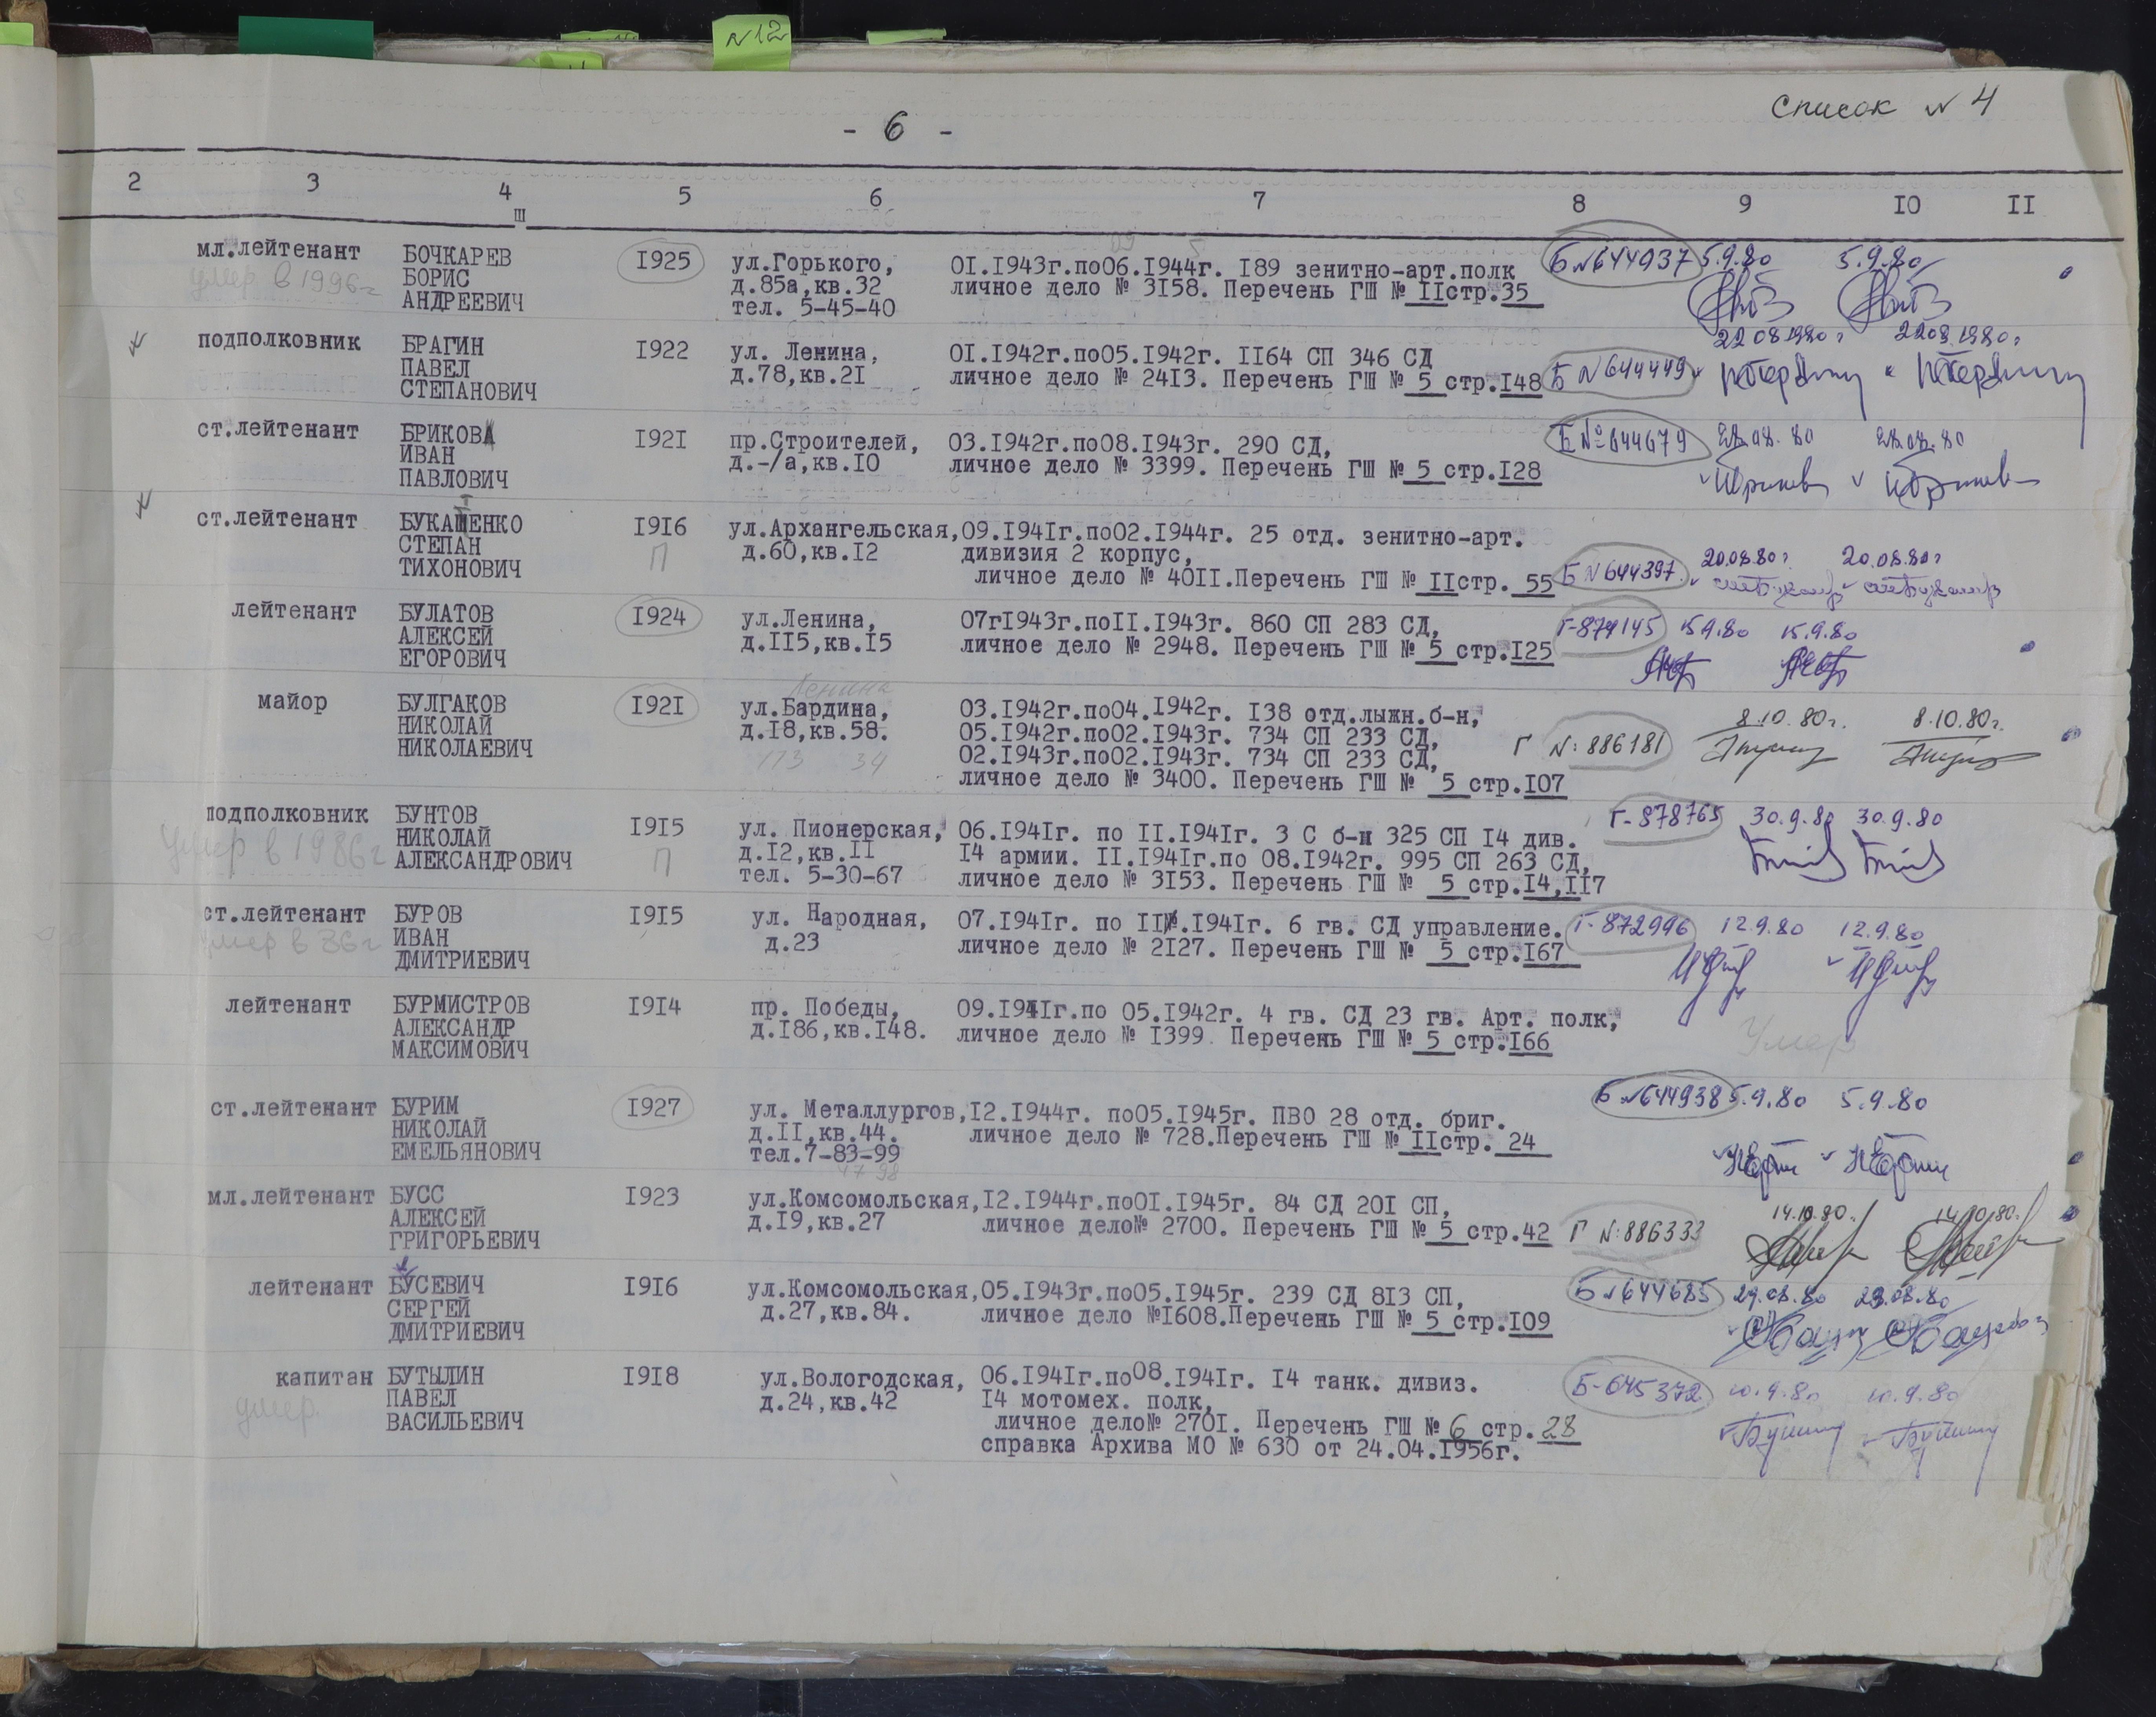 N12
Список N 4
- 6 -
2 3 4 5 6 7 8 9 IO II
ш
мл.лейтенант БОЧКАРЕВ I925 ул.Горького, OI.I943г.по06.I944г. I89 зенитно-арт.полк Б N644937 5.9.80 5.9.80
умер в 1996г БОРИС д.85а,кв.32 личное дело № 3I58. Перечень ГШ № II стр.35
АНДРЕЕВИЧ тел. 5-45-40
подполковник БРАГИН I922 ул. Ленина, OI.I942г.по05.I942г. II64 СП 346 СД 22 08 1980г 22 08.1980г
ПАВЕЛ д.78,кв.2I личное дело № 24I3. Перечень ГШ № 5 стр.I48 Б N 644449
СТЕПАНОВИЧ
ст.лейтенант БРИКОВ I92I пр.Строителей, 03.I942г.по08.I943г. 290 СД, Б № 644679 28.08.80 28.08.80
ИВАН д.-/а,кв.IO личное дело № 3399. Перечень ГШ № 5 стр.I28
ПАВЛОВИЧ
ст.лейтенант БУКАТЕНКО I9I6 ул.Архангельская, 09.I94Iг.по02.I944г. 25 отд. зенитно-арт.
СТЕПАН П д.60,кв.I2 дивизия 2 корпус,
ТИХОНОВИЧ личное дело № 40II.Перечень ГШ № II стр. 55 Б N 644397 20.08.80г 20.08.80г
лейтенант БУЛАТОВ I924 ул.Ленина, 07гI943г.поII.I943г. 860 СП 283 СД, Г-874145 15.9.80 15.9.80
АЛЕКСЕЙ д.II5,кв.I5 личное дело № 2948. Перечень ГШ № 5 стр.I25
ЕГОРОВИЧ
Ленина
майор БУЛГАКОВ I92I ул.Бардина, 03.I942г.по04.I942г. I38 отд.лыжн.б-н, 8.10.80г. 8.10.80г.
НИКОЛАЙ д.I8,кв.58. 05.I942г.по02.I943г. 734 СП 233 СД, Г N: 886181
НИКОЛАЕВИЧ 113 34 02.I943г.по02.I943г. 734 СП 233 СД,
личное дело № 3400. Перечень ГШ № 5 стр.I07
подполковник БУНТОВ I9I5 ул. Пионерская, 06.I94Iг. по II.I94Iг. 3 С б-н 325 СП I4 див. Г-878765 30.9.80 30.9.80
умер в 1986г НИКОЛАЙ д.I2,кв.II I4 армии. II.I94Iг.по 08.I942г. 995 СП 263 СД,
АЛЕКСАНДРОВИЧ П тел. 5-30-67 личное дело № 3I53. Перечень ГШ № 5 стр.I4,II7
ст.лейтенант БУРОВ I9I5 ул. Народная, 07.I94Iг. по II.I94Iг. 6 гв. СД управление. Г-872996 12.9.80 12.9.80
умер в 86г ИВАН д.23 личное дело № 2I27. Перечень ГШ № 5 стр.I67
ДМИТРИЕВИЧ
лейтенант БУРМИСТРОВ I9I4 пр. Победы, 09.I94Iг.по 05.I942г. 4 гв. СД 23 гв. Арт. полк, Умер
АЛЕКСАНДР д.I86,кв.I48. личное дело № I399. Перечень ГШ № 5 стр.I66
МАКСИМОВИЧ
ст.лейтенант БУРИМ I927 ул. Металлургов, I2.I944г. по05.I945г. ПВО 28 отд. бриг. Б N644938 5.9.80 5.9.80
НИКОЛАЙ д.II,кв.44. личное дело № 728.Перечень ГШ № II стр. 24
ЕМЕЛЬЯНОВИЧ тел.7-83-99
47 98
мл.лейтенант БУСС I923 ул.Комсомольская, I2.I944г.поOI.I945г. 84 СД 20I СП, 14.10.80. 14.10.80.
АЛЕКСЕЙ д.I9,кв.27 личное дело№ 2700. Перечень ГШ № 5 стр.42 Г N:886333
ГРИГОРЬЕВИЧ
лейтенант БУСЕВИЧ I9I6 ул.Комсомольская, 05.I943г.по05.I945г. 239 СД 8I3 СП, Б N644685 29.08.80 29.08.80
СЕРГЕЙ д.27,кв.84. личное дело №I608.Перечень ГШ № 5 стр.I09
ДМИТРИЕВИЧ
капитан БУТЫЛИН I9I8 ул.Вологодская, 06.I94Iг.по08.I94Iг. I4 танк. дивиз. Б-645372 10.9.80 10.9.80
умер. ПАВЕЛ д.24,кв.42 I4 мотомех. полк,
ВАСИЛЬЕВИЧ личное дело№ 270I. Перечень ГШ № 6 стр. 28
справка Архива МО № 630 от 24.04.I956г.